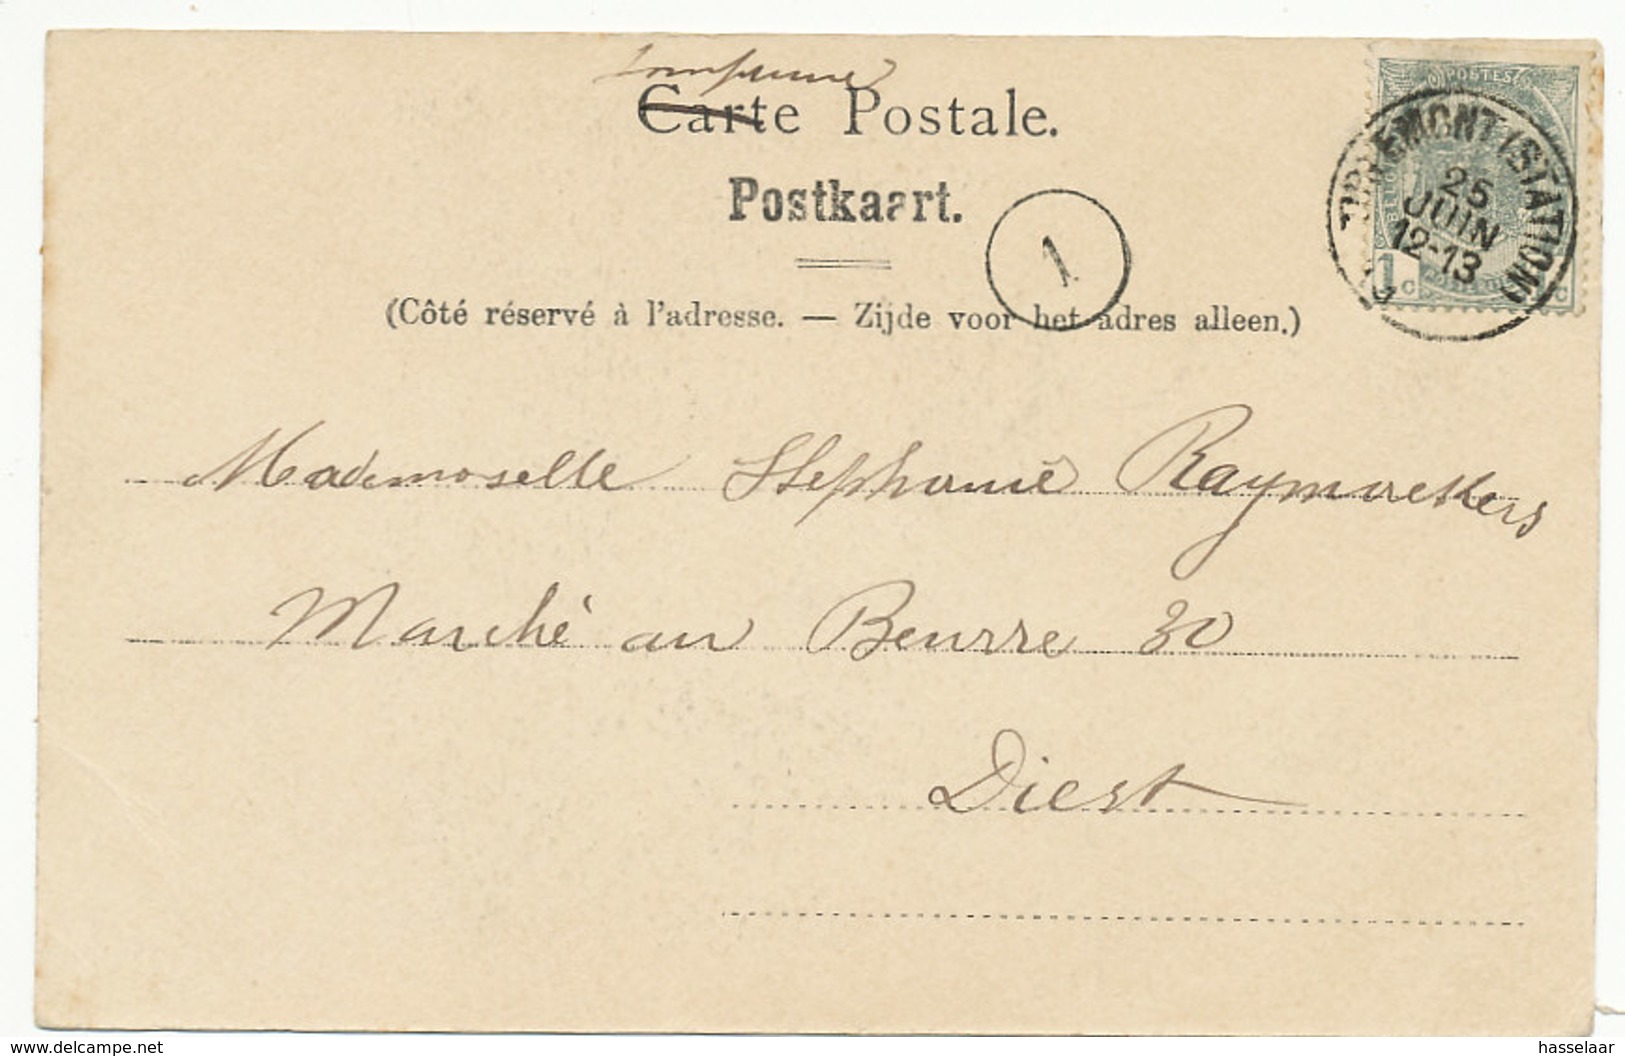 Imprimé
Carte Postale.
Postkaart.
1
(Côté réservé à l'adresse. — Zijde voor het adres alleen.)
POSTES
1c
TIRLEMONT (STATION)
25
JUIN
12-13
Mademoselle Stephanie Raymaekers
Marché au Beurre 30
Diest
www.delcampe.net
hasselaar